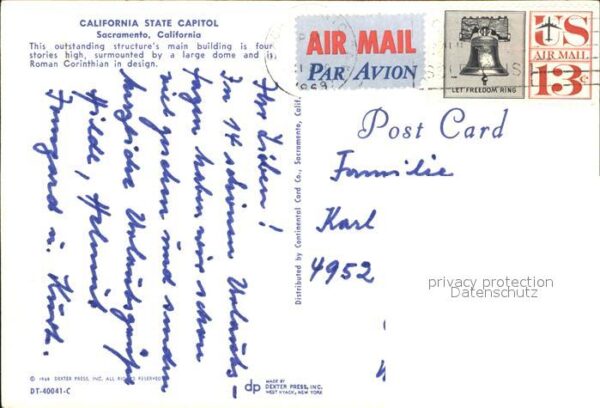 CALIFORNIA STATE CAPITOL
Sacramento, California
This outstanding structure's main building is four
stories high, surmounted by a large dome and is
Roman Corinthian in design.
AIR MAIL
PAR AVION
1969
LET FREEDOM RING
US
AIR MAIL
13c
Post Card
Familie
Karl
4952
privacy protection
Datenschutz
Ihr Lieben!
In 14 schönen Urlaubs-
tagen haben wir schon
viel gesehen und senden
herzliche Urlaubsgrüße
Hilde, Helmut
Irmgard u. Kurt.
Distributed by Continental Card Co., Sacramento, Calif.
© 1968 DEXTER PRESS, INC. ALL RIGHTS RESERVED
DT-40041-C
dp
MADE BY
DEXTER PRESS, INC.
WEST NYACK, NEW YORK